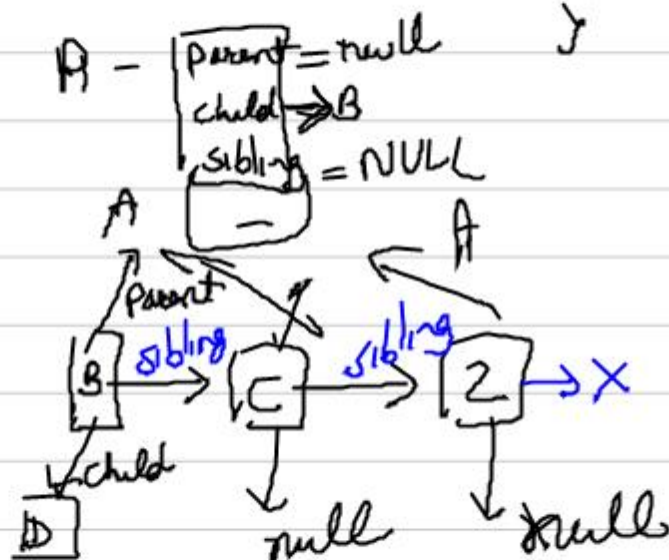 A - parent = null
child → B
sibling = NULL
-
A A
Parent
sibling sibling
B C Z X
child
D null null